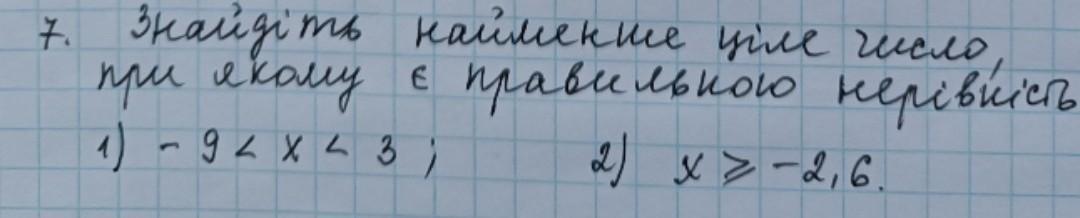 7. Знайдіть найменше ціле число,
при якому є правильною нерівність
1) - 9 < x < 3 ; 2) x ⩾ -2,6.